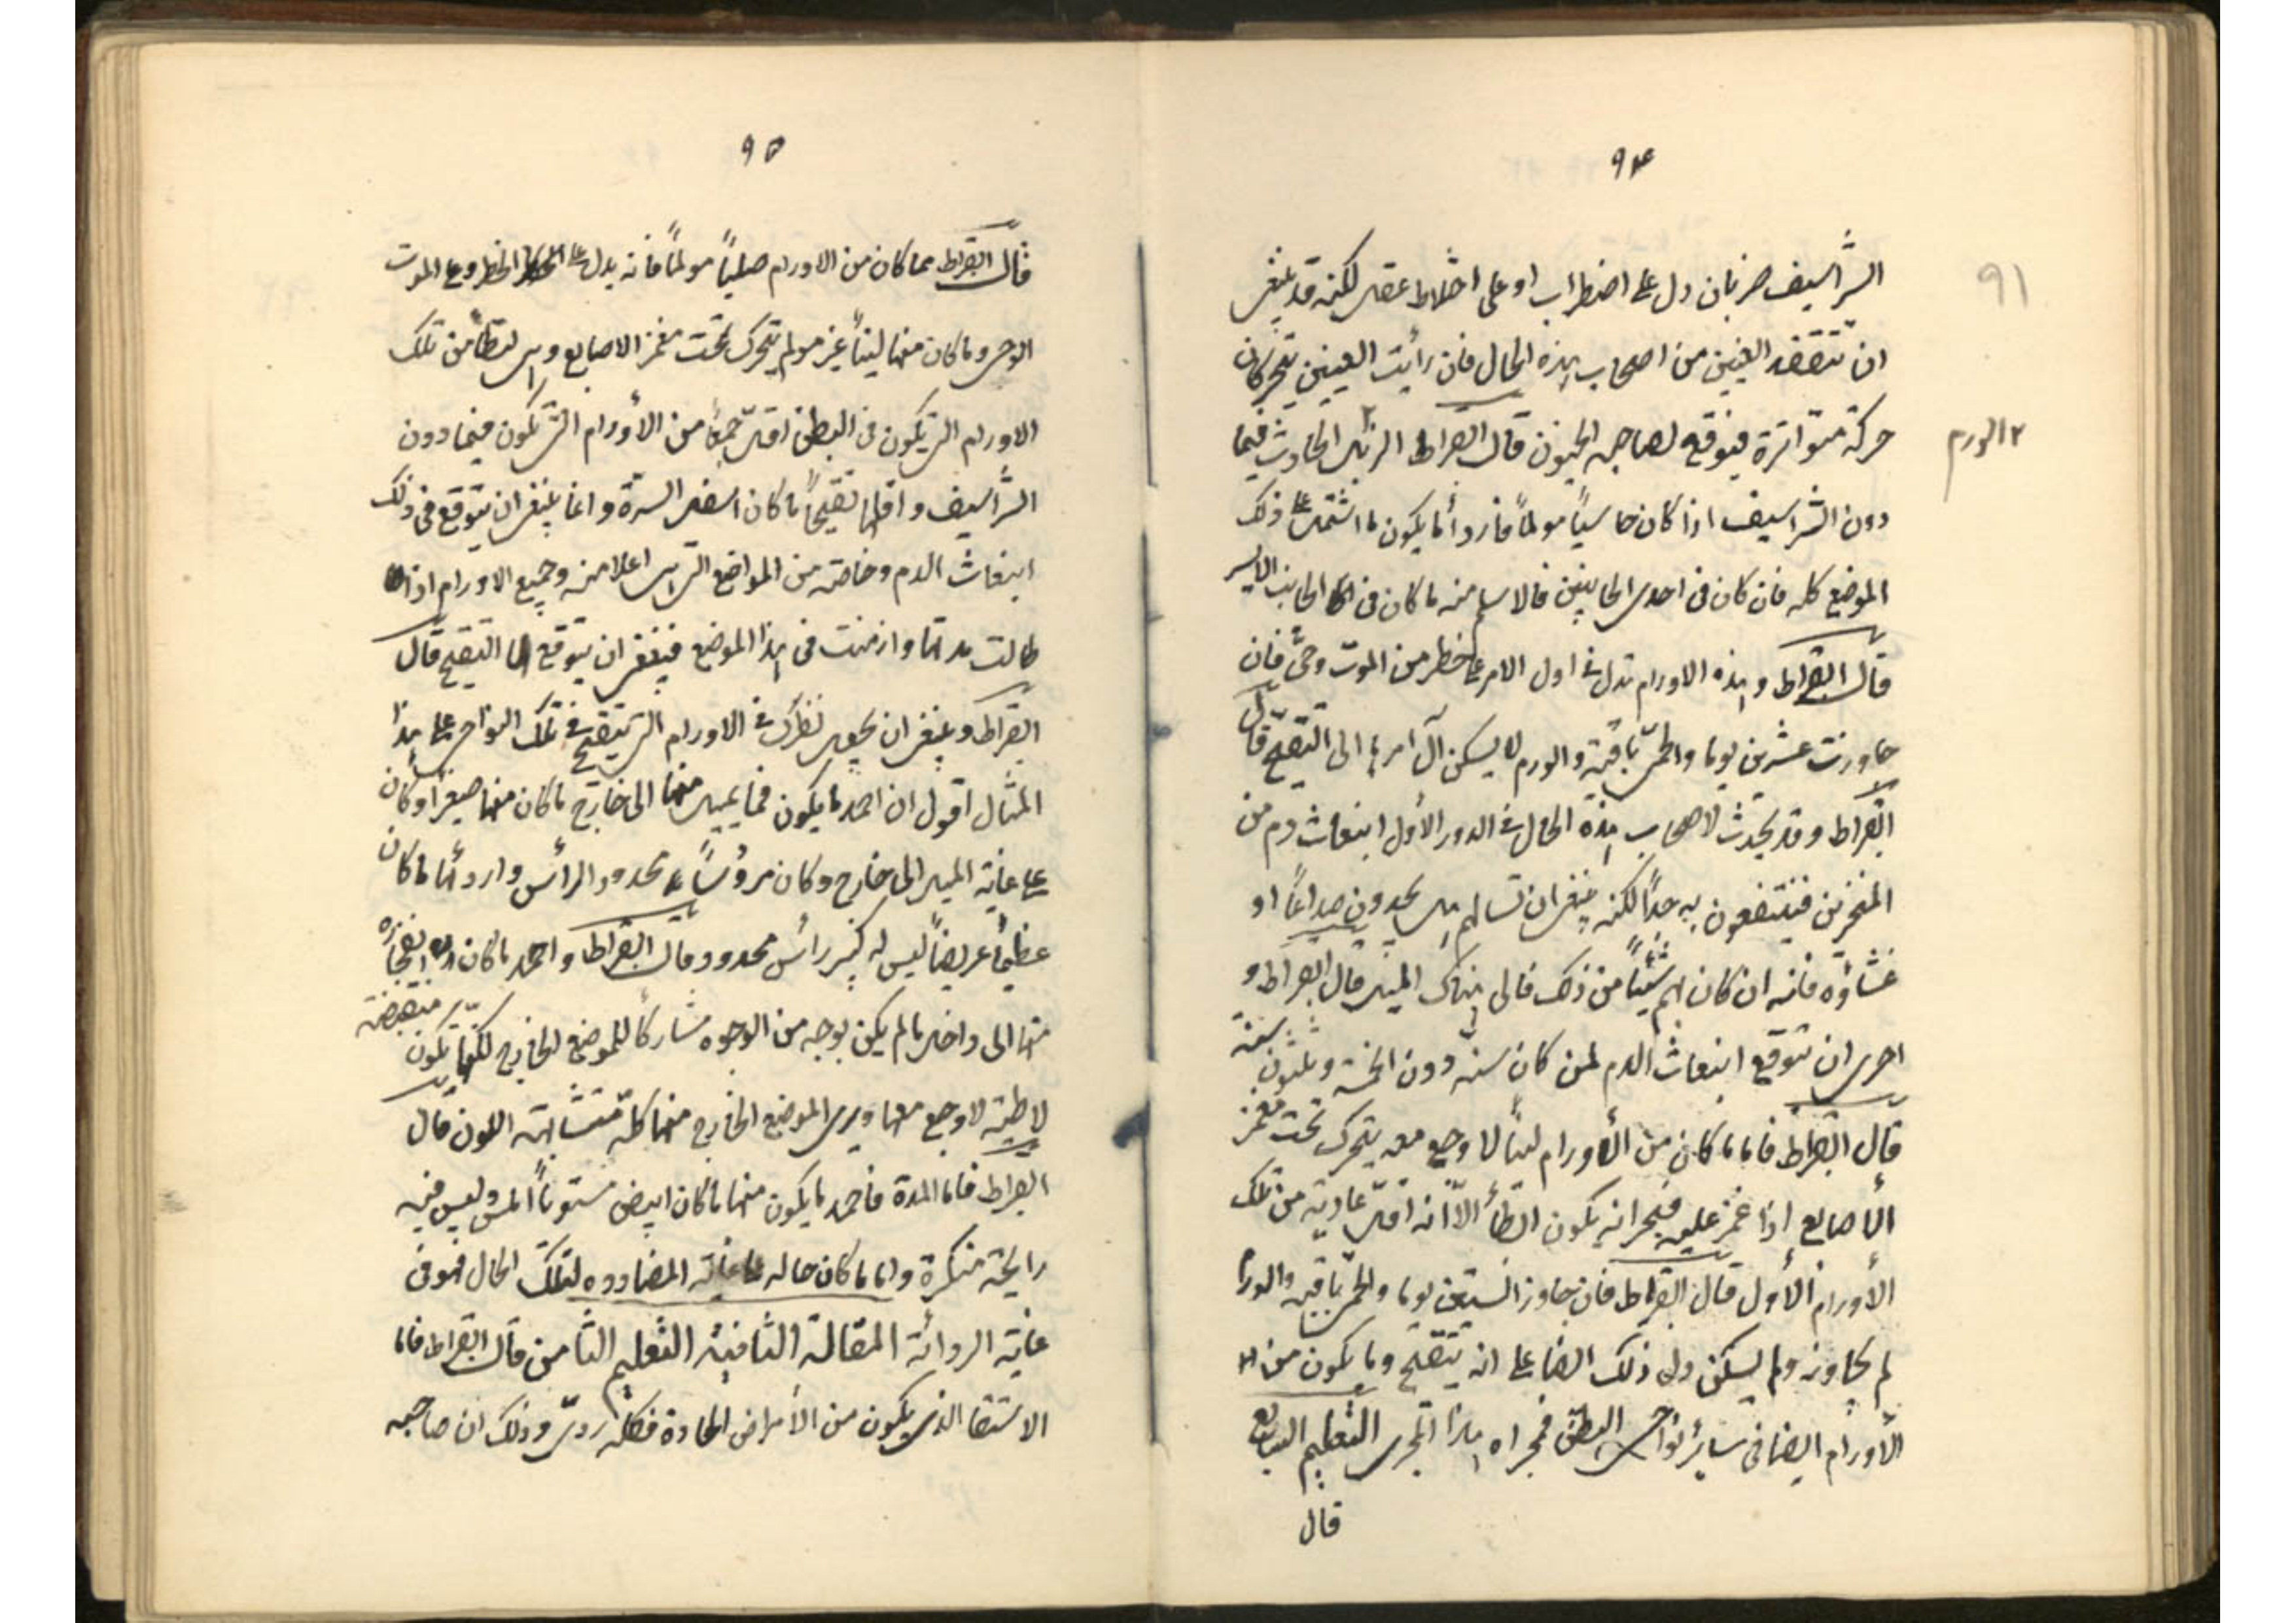 ٩٤
٩١
الشراسيف ضربان دل على اضطراب او على اختلاط عقل لكنه قد ينبغي
ان تتفقد العينين من اصحاب هذه الحال فان رأيت العينين تتحركان
حركة متواترة فتوقع لصاحبه الجنون قال ابقراط الريٰ٢ الحادث فيما
٢ الورم
دون الشراسيف اذا كان حاسياً مولماً فاردأ ما يكون ما اشتمل على ذلك
الموضع كله فان كان في احدى الجانبين فالاسلم منه ما كان في الجانب الايسر
قال ابقراط وهذه الاورام تدل في اول الامر على خطر من الموت وحيّ فان
جاورنت عشرين يوما والحمى باقية والورم لا يسكن آل امرها الى التقيّح قال
ابقراط وقد يحدث لاصحاب هذه الحال في الدور الأول انبعاث دم من
المنخرين فينتفعون به جداً لكنه ينبغي ان تسالهم هل يجدون صداعاً او
غشاوة فانه ان كان بهم شيئاً من ذلك فالى هناك الميل قال ابقراط و
احرى ان تتوقع انبعاث الدم لمن كان سنه دون الخمسة وثلثون سنة
قال ابقراط فاما ما كان من الأورام ليناً لا وجع معه يتحرك تحت مغمز
الأصابع إذا غمز عليه فبحرانه يكون ابطأ الّا انه اقل عادية من تلك
الأورام الأول قال ابقراط فان جاوز الستين يوما والحمى باقية والورم
لم يجاوز ولم يسكن دل ذلك ايضا على انه يتقيح وما يكون من
الأورام ايضا في سائر نواحي البطن فمجراه هذا المجرى التعليم السابع
قال
٩٥
قال ابقراط مما كان من الاورام صلباً مولماً فانه يدل على الخطر وعلى الموت
الوحي وما كان منها ليناً غير مولم يتحرك تحت مغمز الاصابع وهي ابطأ من تلك
الاورام التي تكون في البطن اقل جمعاً من الأورام التي تكون فيما دون
الشراسيف واقلها تقيحاً ما كان اسفل السرة وانما ينبغي ان تتوقع في ذلك
انبعاث الدم وخاصة من المواضع التي هي اعلا منه وجميع الاورام اذا
طالت مدتها وازمنت في هذا الموضع فينبغي ان يتوقع لها التقيح قال
ابقراط وينبغي ان يجعل نظرك في الاورام التي تتقيح في تلك النواحي على هذا
المثال اقول ان احمد ما يكون فما يميل منها الى خارج ما كان منها صغيراً وكان
على غاية الميل الى خارج وكان مروُساً محدود الرأس واردأها ما كان
عظيماً عريضاً ليس له كثير رأس محدود وقال ابقراط واحمد ما كان انفجاره
منها الى داخل ما لم يكن بوجه من الوجوه مشاركاً للموضع الخارج لكنها تكون منقبضة
لاطية لا وجع معها ويرى الموضع الخارج منها كله متشابهة اللون قال
ابقراط فاما المدة فاحمد ما يكون منها ما كان ابيض مستوياً املس وليس فيه
رايحة منكرة واما ما كان حاله على غاية المضاددة لتلك الحال فهو في
غاية الرداءة المقالة الثانية التعليم الثامن قال ابقراط فاما
الاستسقا الذي يكون من الأمراض الحادة فكله رديّ وذلك ان صاحبه